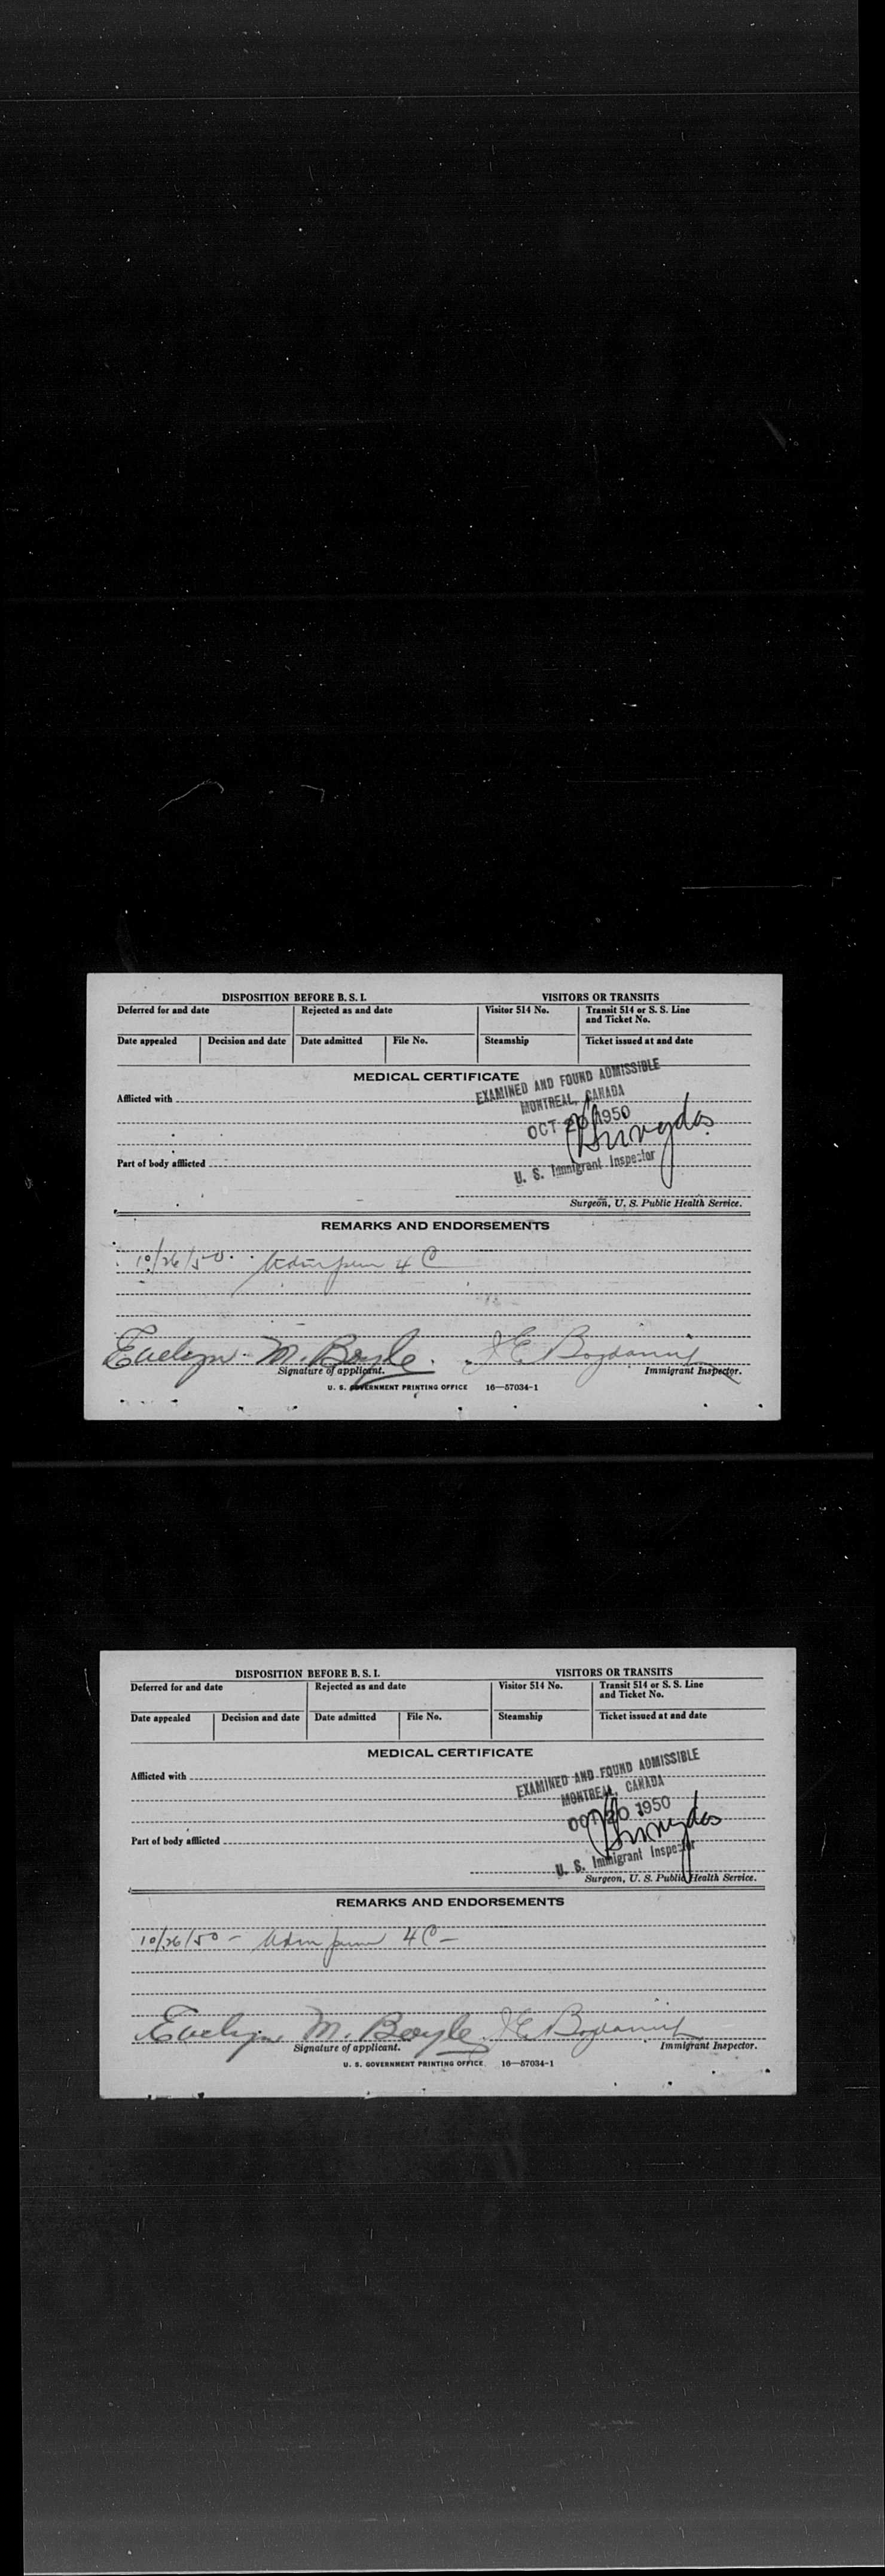 DISPOSITION BEFORE B. S. I. VISITORS OR TRANSITS
Deferred for and date Rejected as and date Visitor 514 No. Transit 514 or S. S. Line
and Ticket No.
Date appealed Decision and date Date admitted File No. Steamship Ticket issued at and date
MEDICAL CERTIFICATE
EXAMINED AND FOUND ADMISSIBLE
Afflicted with
MONTREAL, CANADA
OCT 20 1950
Part of body afflicted
U. S. Immigrant Inspector
Surgeon, U. S. Public Health Service.
REMARKS AND ENDORSEMENTS
10/26/50 4 C
Evelyn M. Boyle. J E
Signature of applicant. Immigrant Inspector.
U. S. GOVERNMENT PRINTING OFFICE 16—57034-1
DISPOSITION BEFORE B. S. I. VISITORS OR TRANSITS
Deferred for and date Rejected as and date Visitor 514 No. Transit 514 or S. S. Line
and Ticket No.
Date appealed Decision and date Date admitted File No. Steamship Ticket issued at and date
MEDICAL CERTIFICATE
EXAMINED AND FOUND ADMISSIBLE
Afflicted with
MONTREAL, CANADA
OCT 20 1950
Part of body afflicted
U. S. Immigrant Inspector
Surgeon, U. S. Public Health Service.
REMARKS AND ENDORSEMENTS
10/26/50 - 4C -
Evelyn M. Boyle J E
Signature of applicant. Immigrant Inspector.
U. S. GOVERNMENT PRINTING OFFICE 16—57034-1